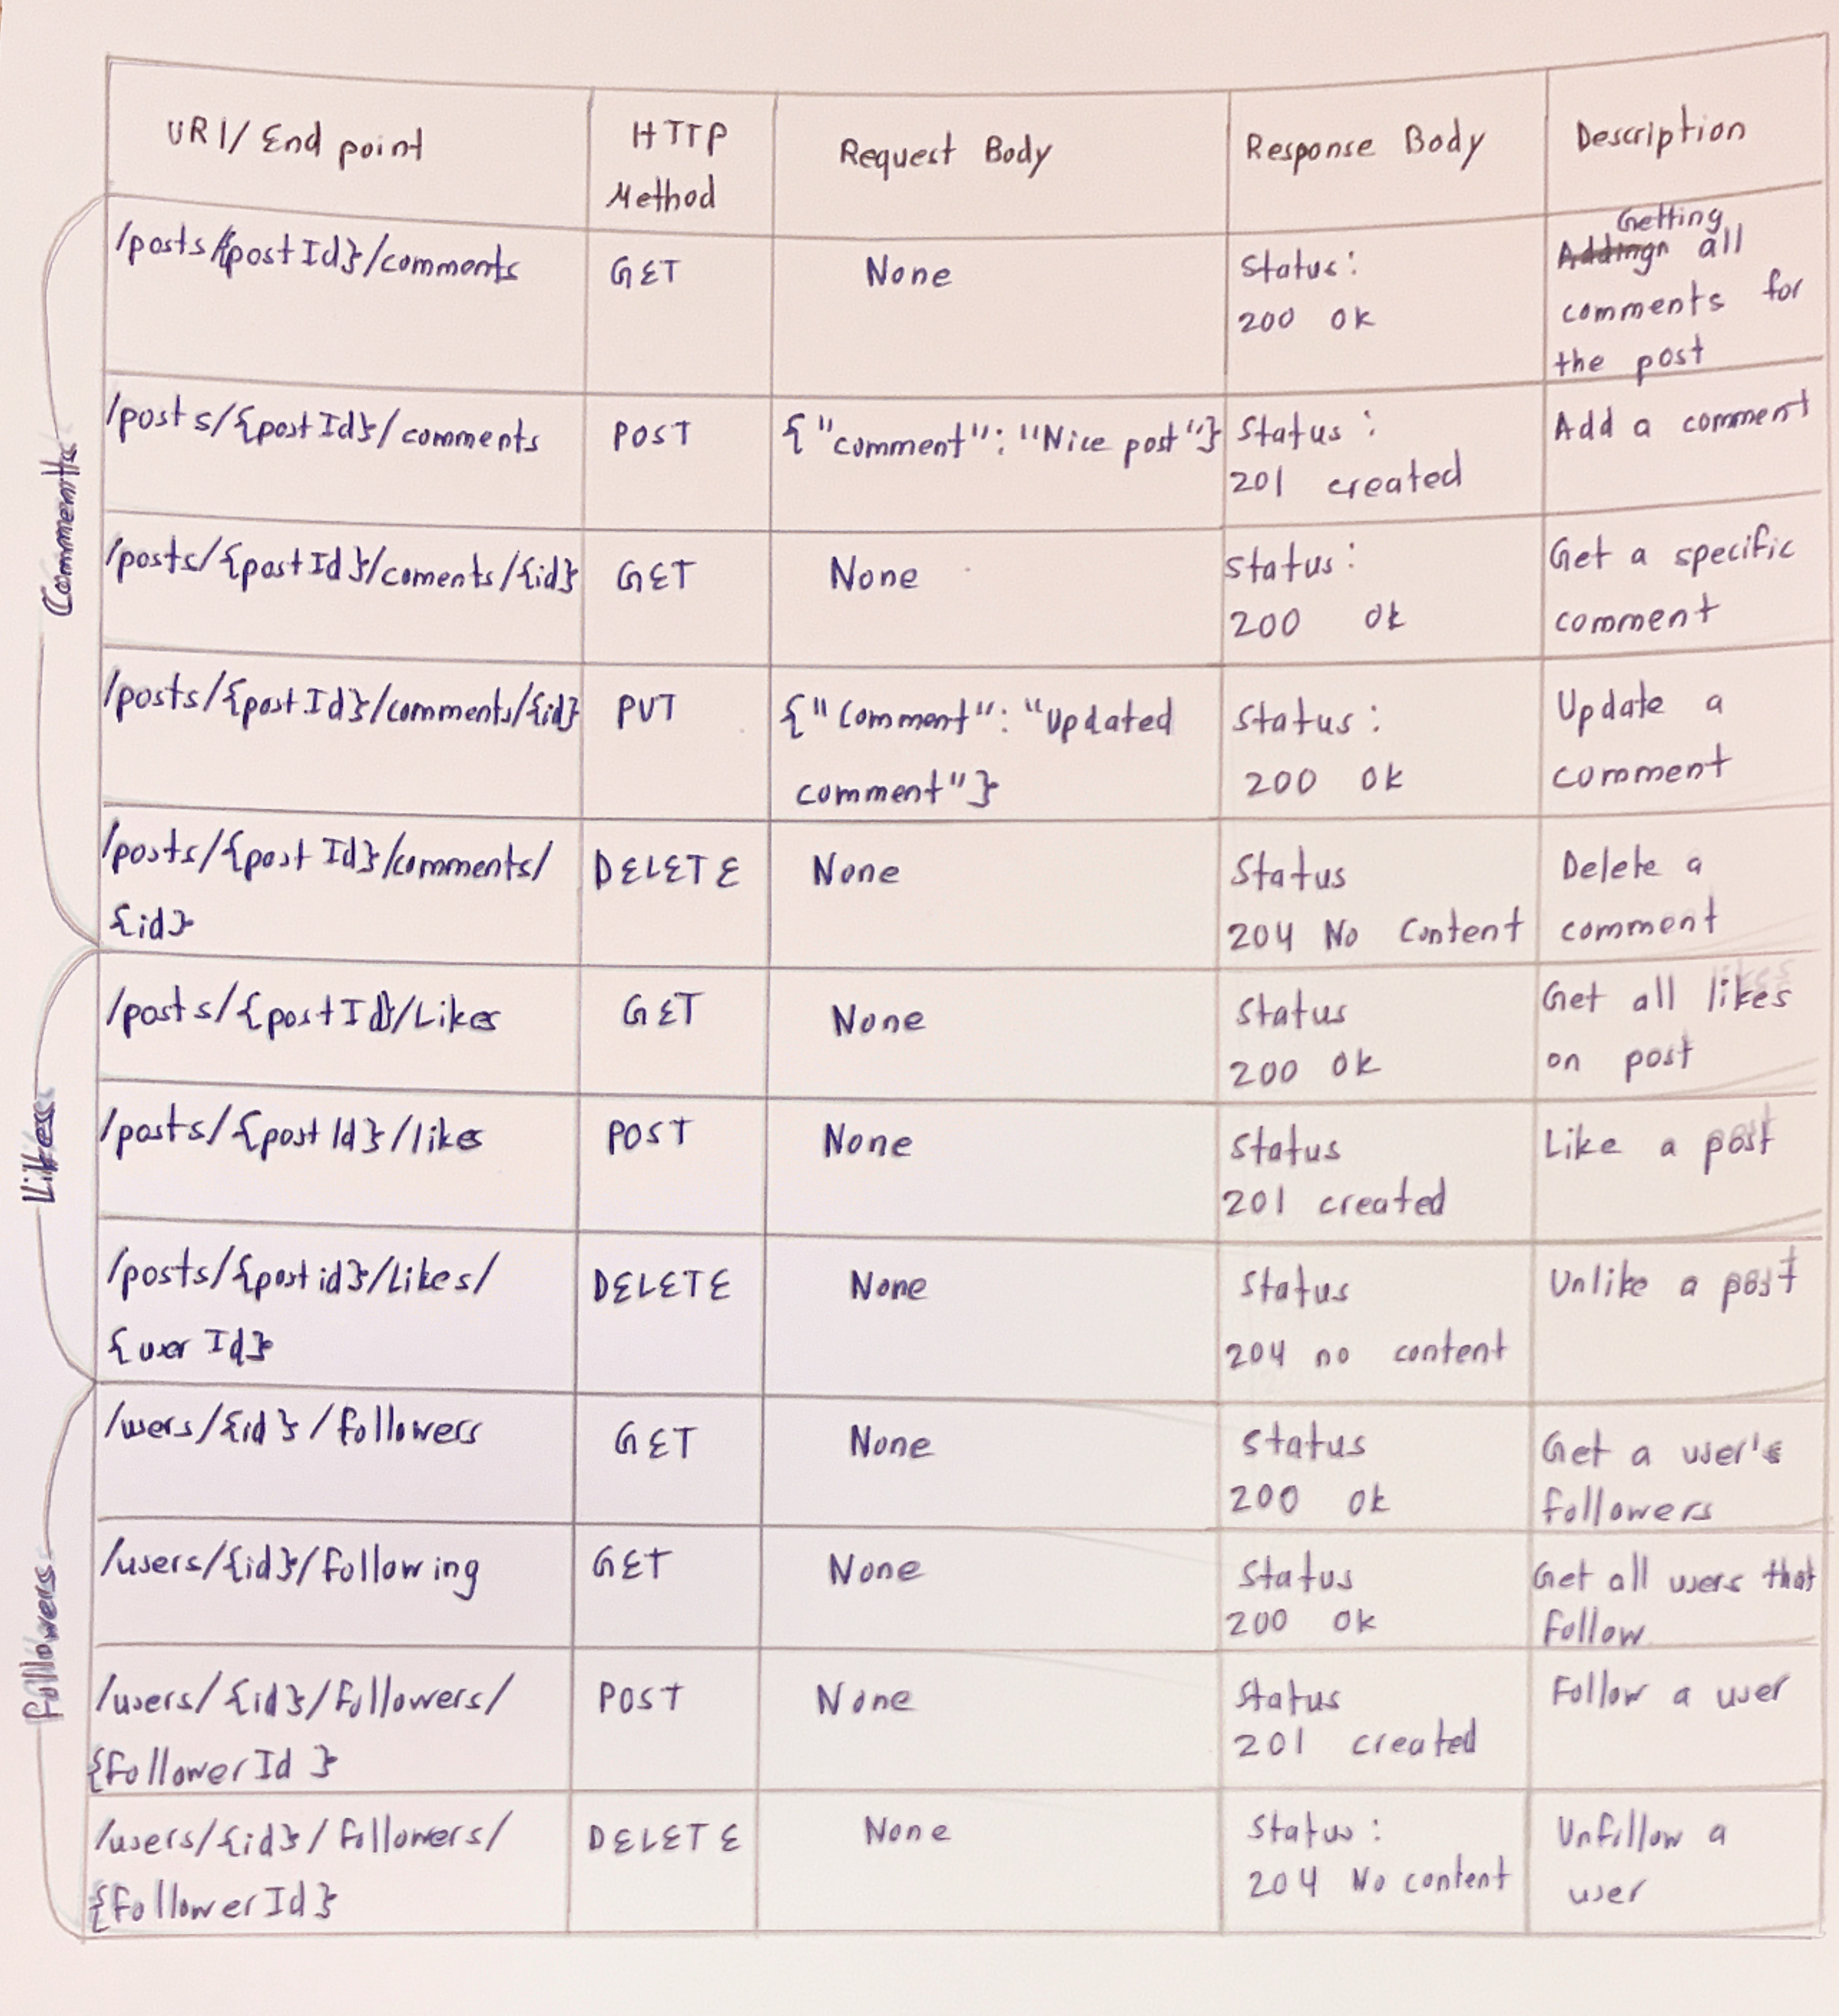 URI/ End point
HTTP
Method
Request Body
Response Body
Description
Comments
/posts/{postId}/comments
GET
None
Status:
200 ok
Getting
all
comments for
the post
/posts/{postId}/comments
POST
{"comment": "Nice post"}
Status:
201 created
Add a comment
/posts/{postId}/coments/{id}
GET
None
Status:
200 ok
Get a specific
comment
/posts/{postId}/comments/{id}
PUT
{"Comment": "Updated
comment"}
Status:
200 ok
Update a
comment
/posts/{postId}/comments/
{id}
DELETE
None
Status
204 No Content
Delete a
comment
Likes
/posts/{postId}/Likes
GET
None
Status
200 ok
Get all likes
on post
/posts/{postId}/likes
POST
None
Status
201 created
Like a post
/posts/{postid}/Likes/
{userId}
DELETE
None
Status
204 no content
Unlike a post
Followers
/users/{id}/followers
GET
None
Status
200 ok
Get a user's
followers
/users/{id}/following
GET
None
Status
200 ok
Get all users that
follow
/users/{id}/followers/
{followerId}
POST
None
Status
201 created
Follow a user
/users/{id}/followers/
{followerId}
DELETE
None
Status:
204 No content
Unfollow a
user